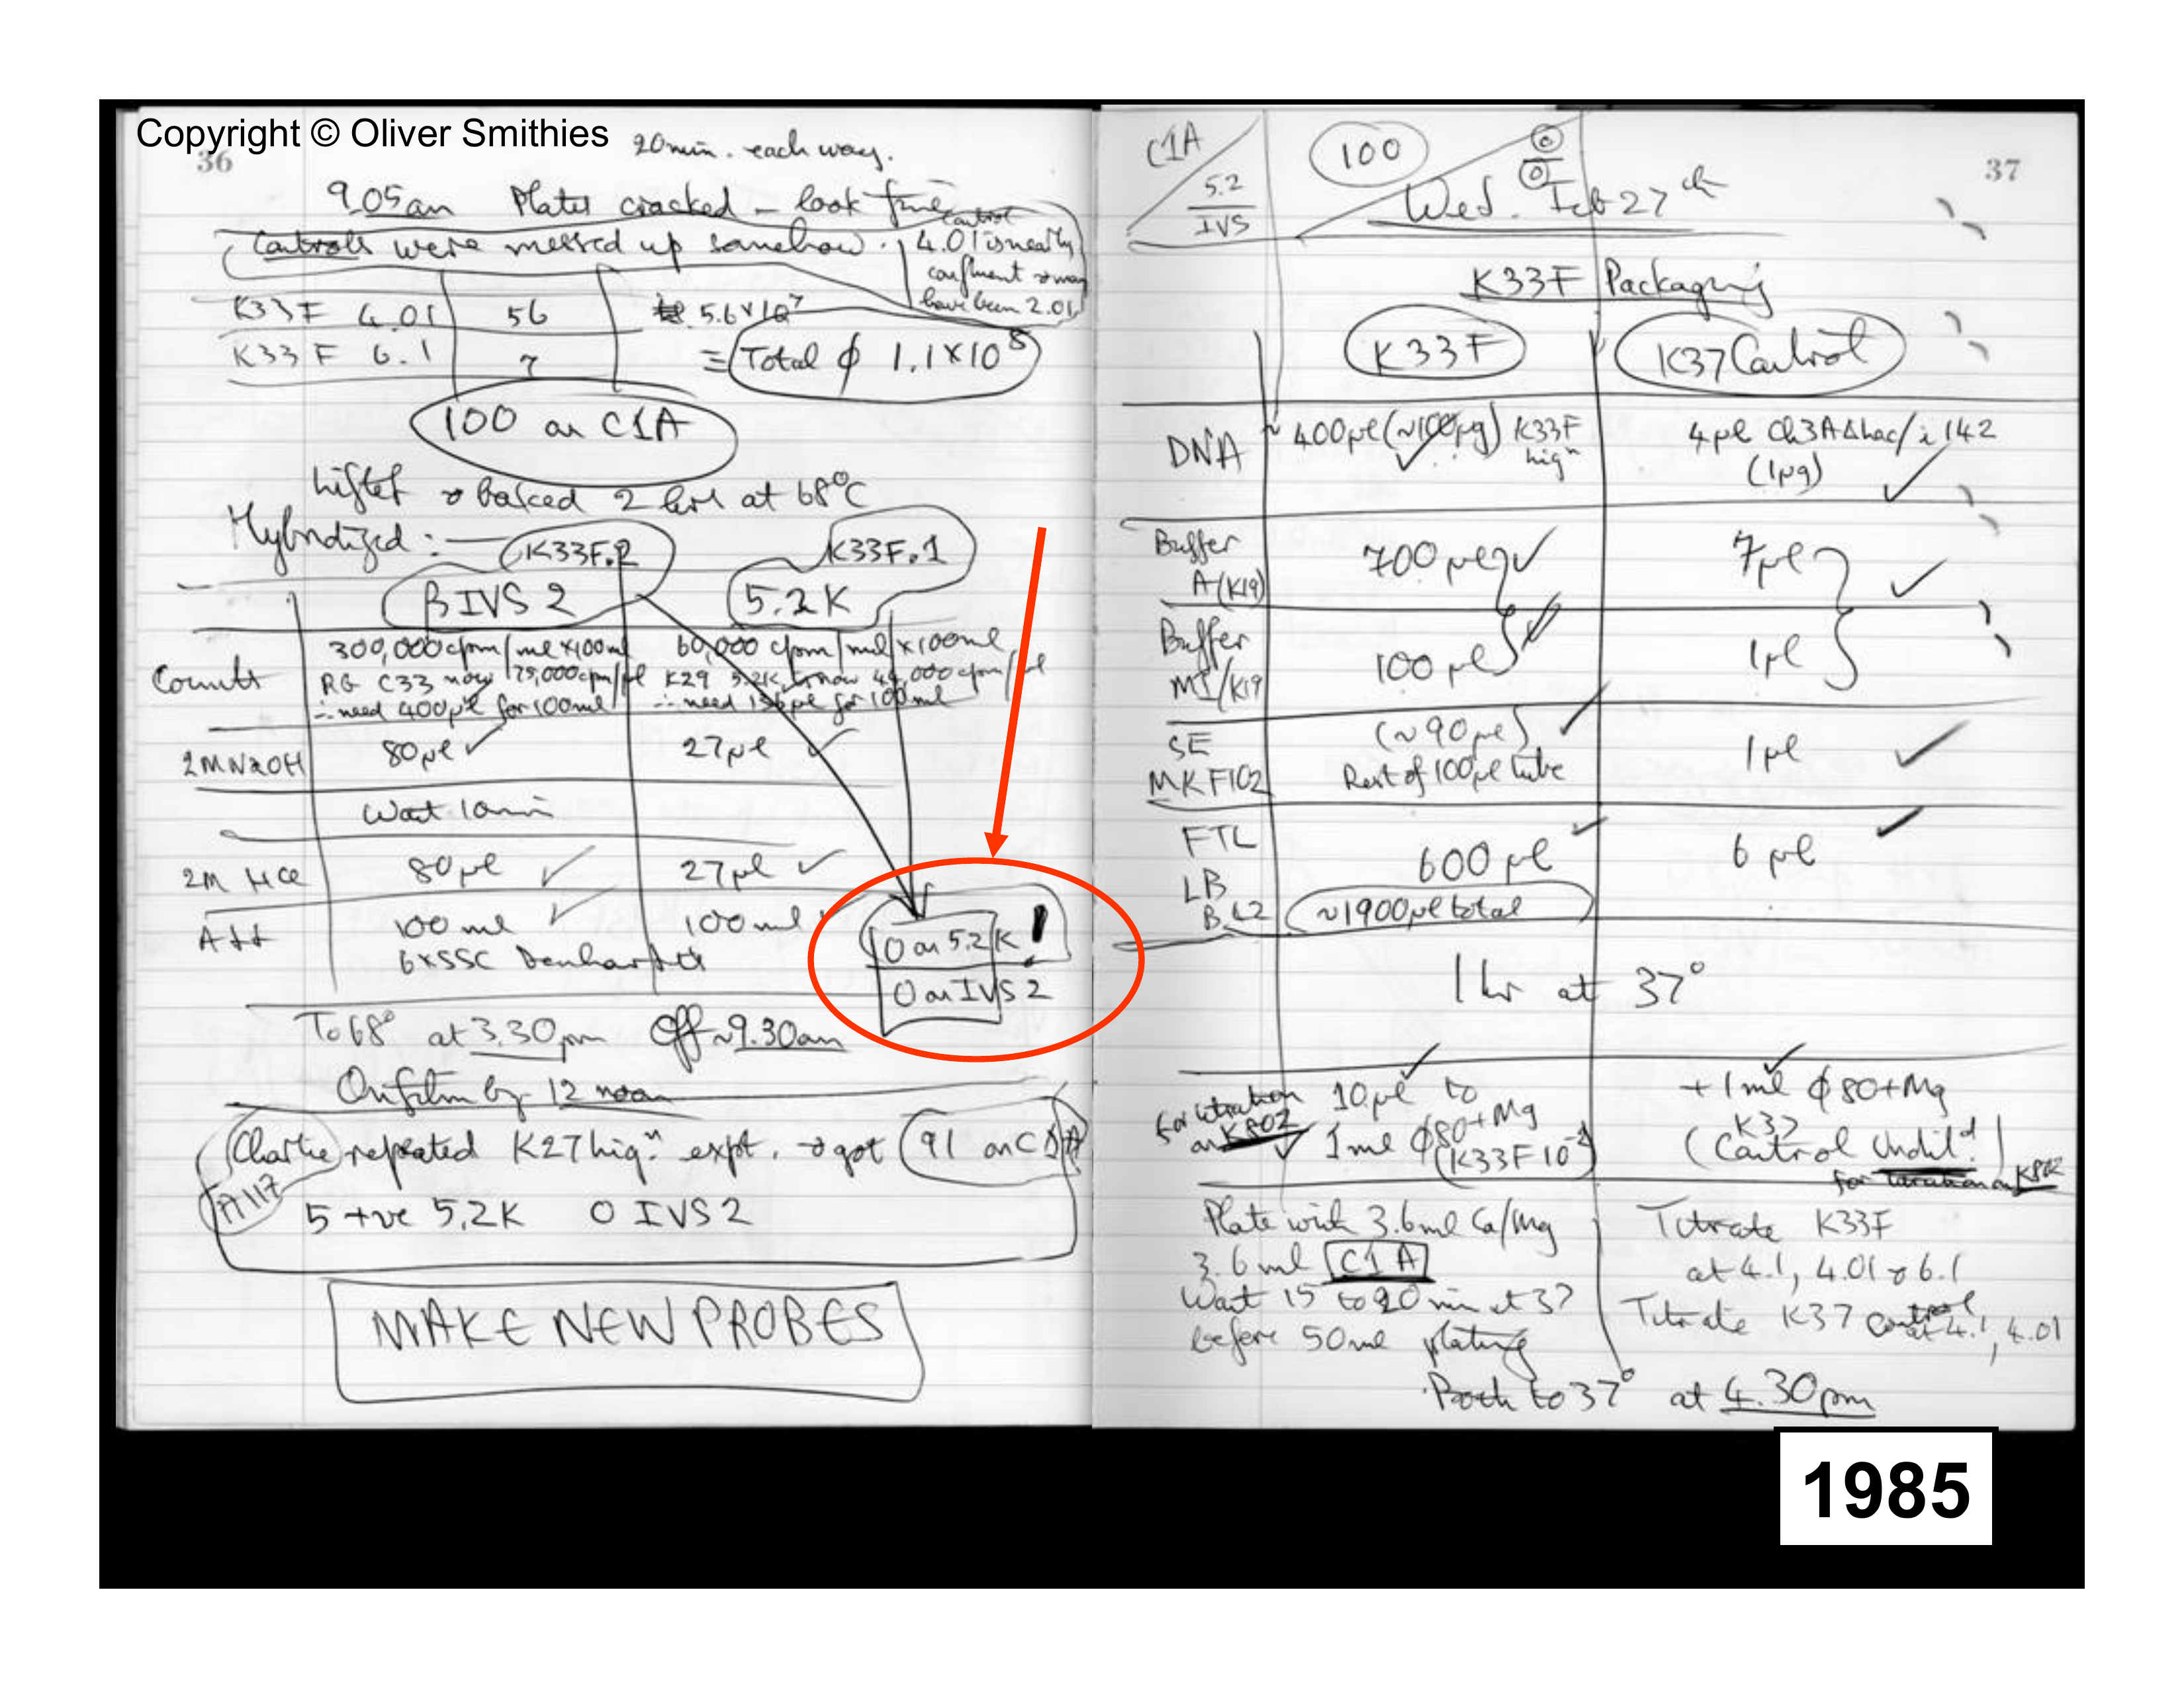 Copyright © Oliver Smithies
36
20min. each way.
9.05am Plates cracked - look fine
Controls were messed up somehow.
control
4.01 is nearly
confluent & may
have been 2.01
K33F 4.01 56 5.6×10⁷
K33F 6.1 7 ≡ Total ϕ 1.1×10⁸
100 on C1A
Lifted & baked 2 hrs at 68°C
Hybridized: K33F.2 K33F.1
βIVS2 5.2K
Counts
300,000 cpm/ml ×100ml 60,000 cpm/ml ×100ml
RG C33 now 175,000cpm/μl K29 5.2K now 000 cpm/μl
∴ need 400μl for 100ml ∴ need μl for 100ml
2M NaOH 80μl ✓ 27μl ✓
Wait 10min
2M HCl 80μl ✓ 27μl ✓
Add 100ml ✓ 100ml
6×SSC Denhardts
0 on 5.2K !
0 on IVS2
To 68° at 3.30pm Off ~9.30am
On film by 12 noon
Charlie repeated K27 hign expt. & got 91 on C1A
A117
5 +ve 5.2K 0 IVS2
MAKE NEW PROBES
C1A
5.2
IVS
100
0
0
37
Wed. Feb 27th
K33F Packaging
K33F K37 Control
DNA ~400μl (~100μg) K33F hign 4μl Ch3AΔlac/i142
(1μg) ✓
Buffer A (K19) 700μl ✓ 7μl ✓
Buffer M1/K19 100μl 1μl
SE MKF102 (~90μl) ✓ 1μl ✓
Rest of 100μl tube
FTL 600μl ✓ 6μl ✓
LB
B L2 ~1900μl total
1 hr at 37°
for titration on K802 10μl to + 1ml ϕ80+Mg
1ml ϕ80+Mg K37
(K33F 10⁻²) (Control Undild.)
for titration on K802
Plate with 3.6ml Ca/Mg
3.6ml C1A
Wait 15 to 20 min at 37
before 50ml plating
Titrate K33F
at 4.1, 4.01 & 6.1
Titrate K37 control
at 4.1, 4.01
Both to 37° at 4.30pm
1985